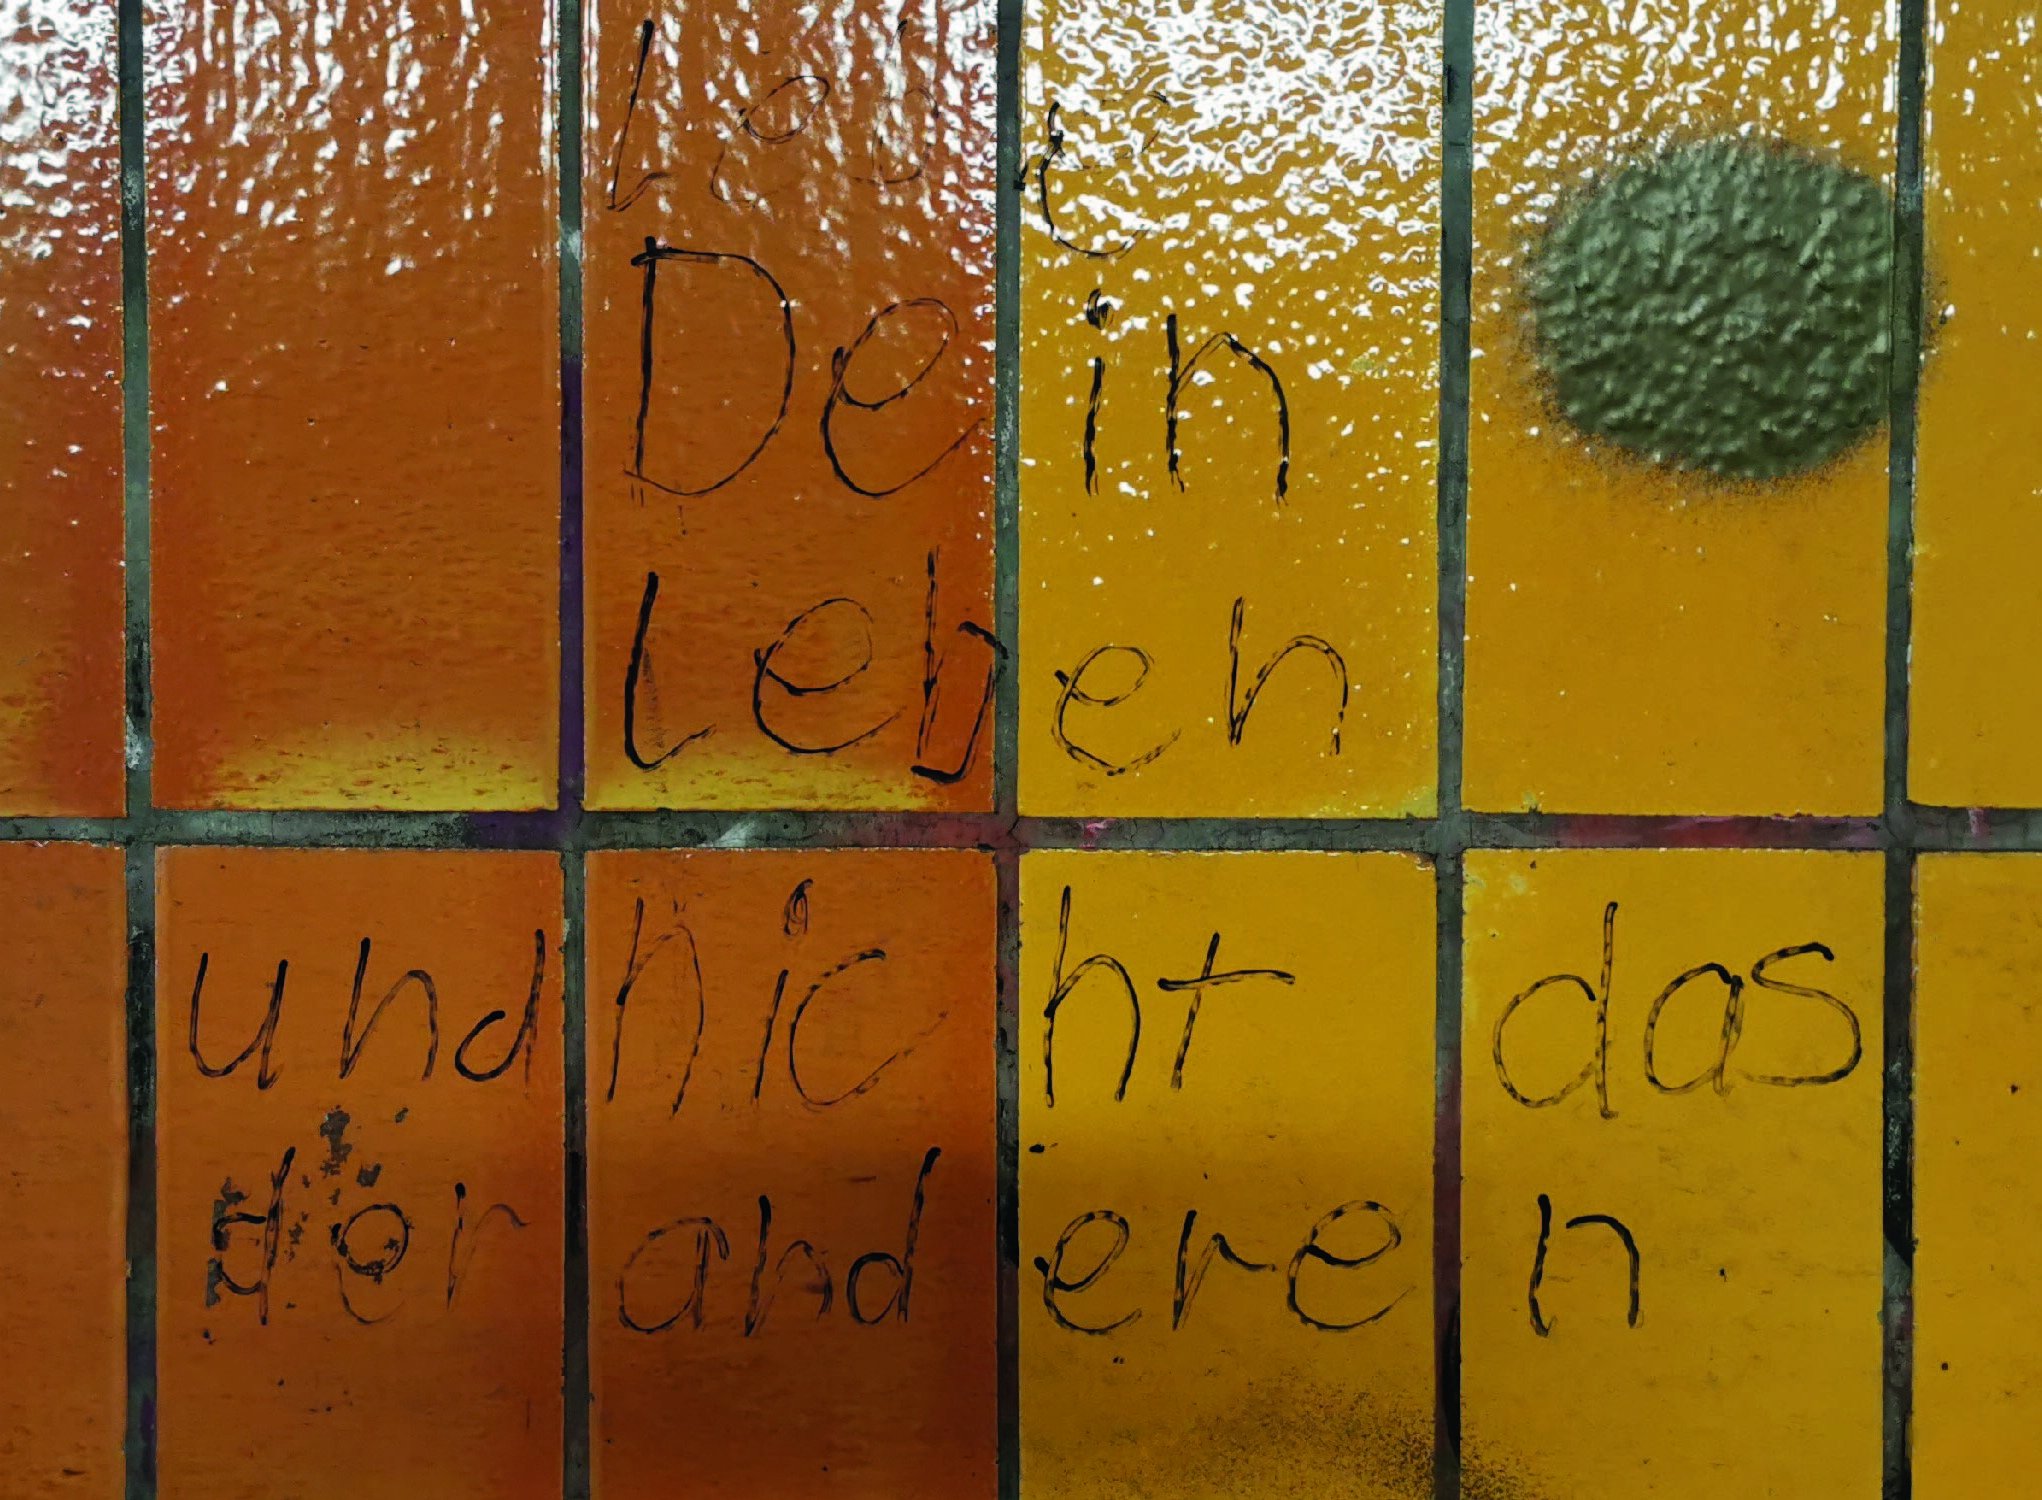 Lebe
Dein
Leben
und nicht das
der anderen